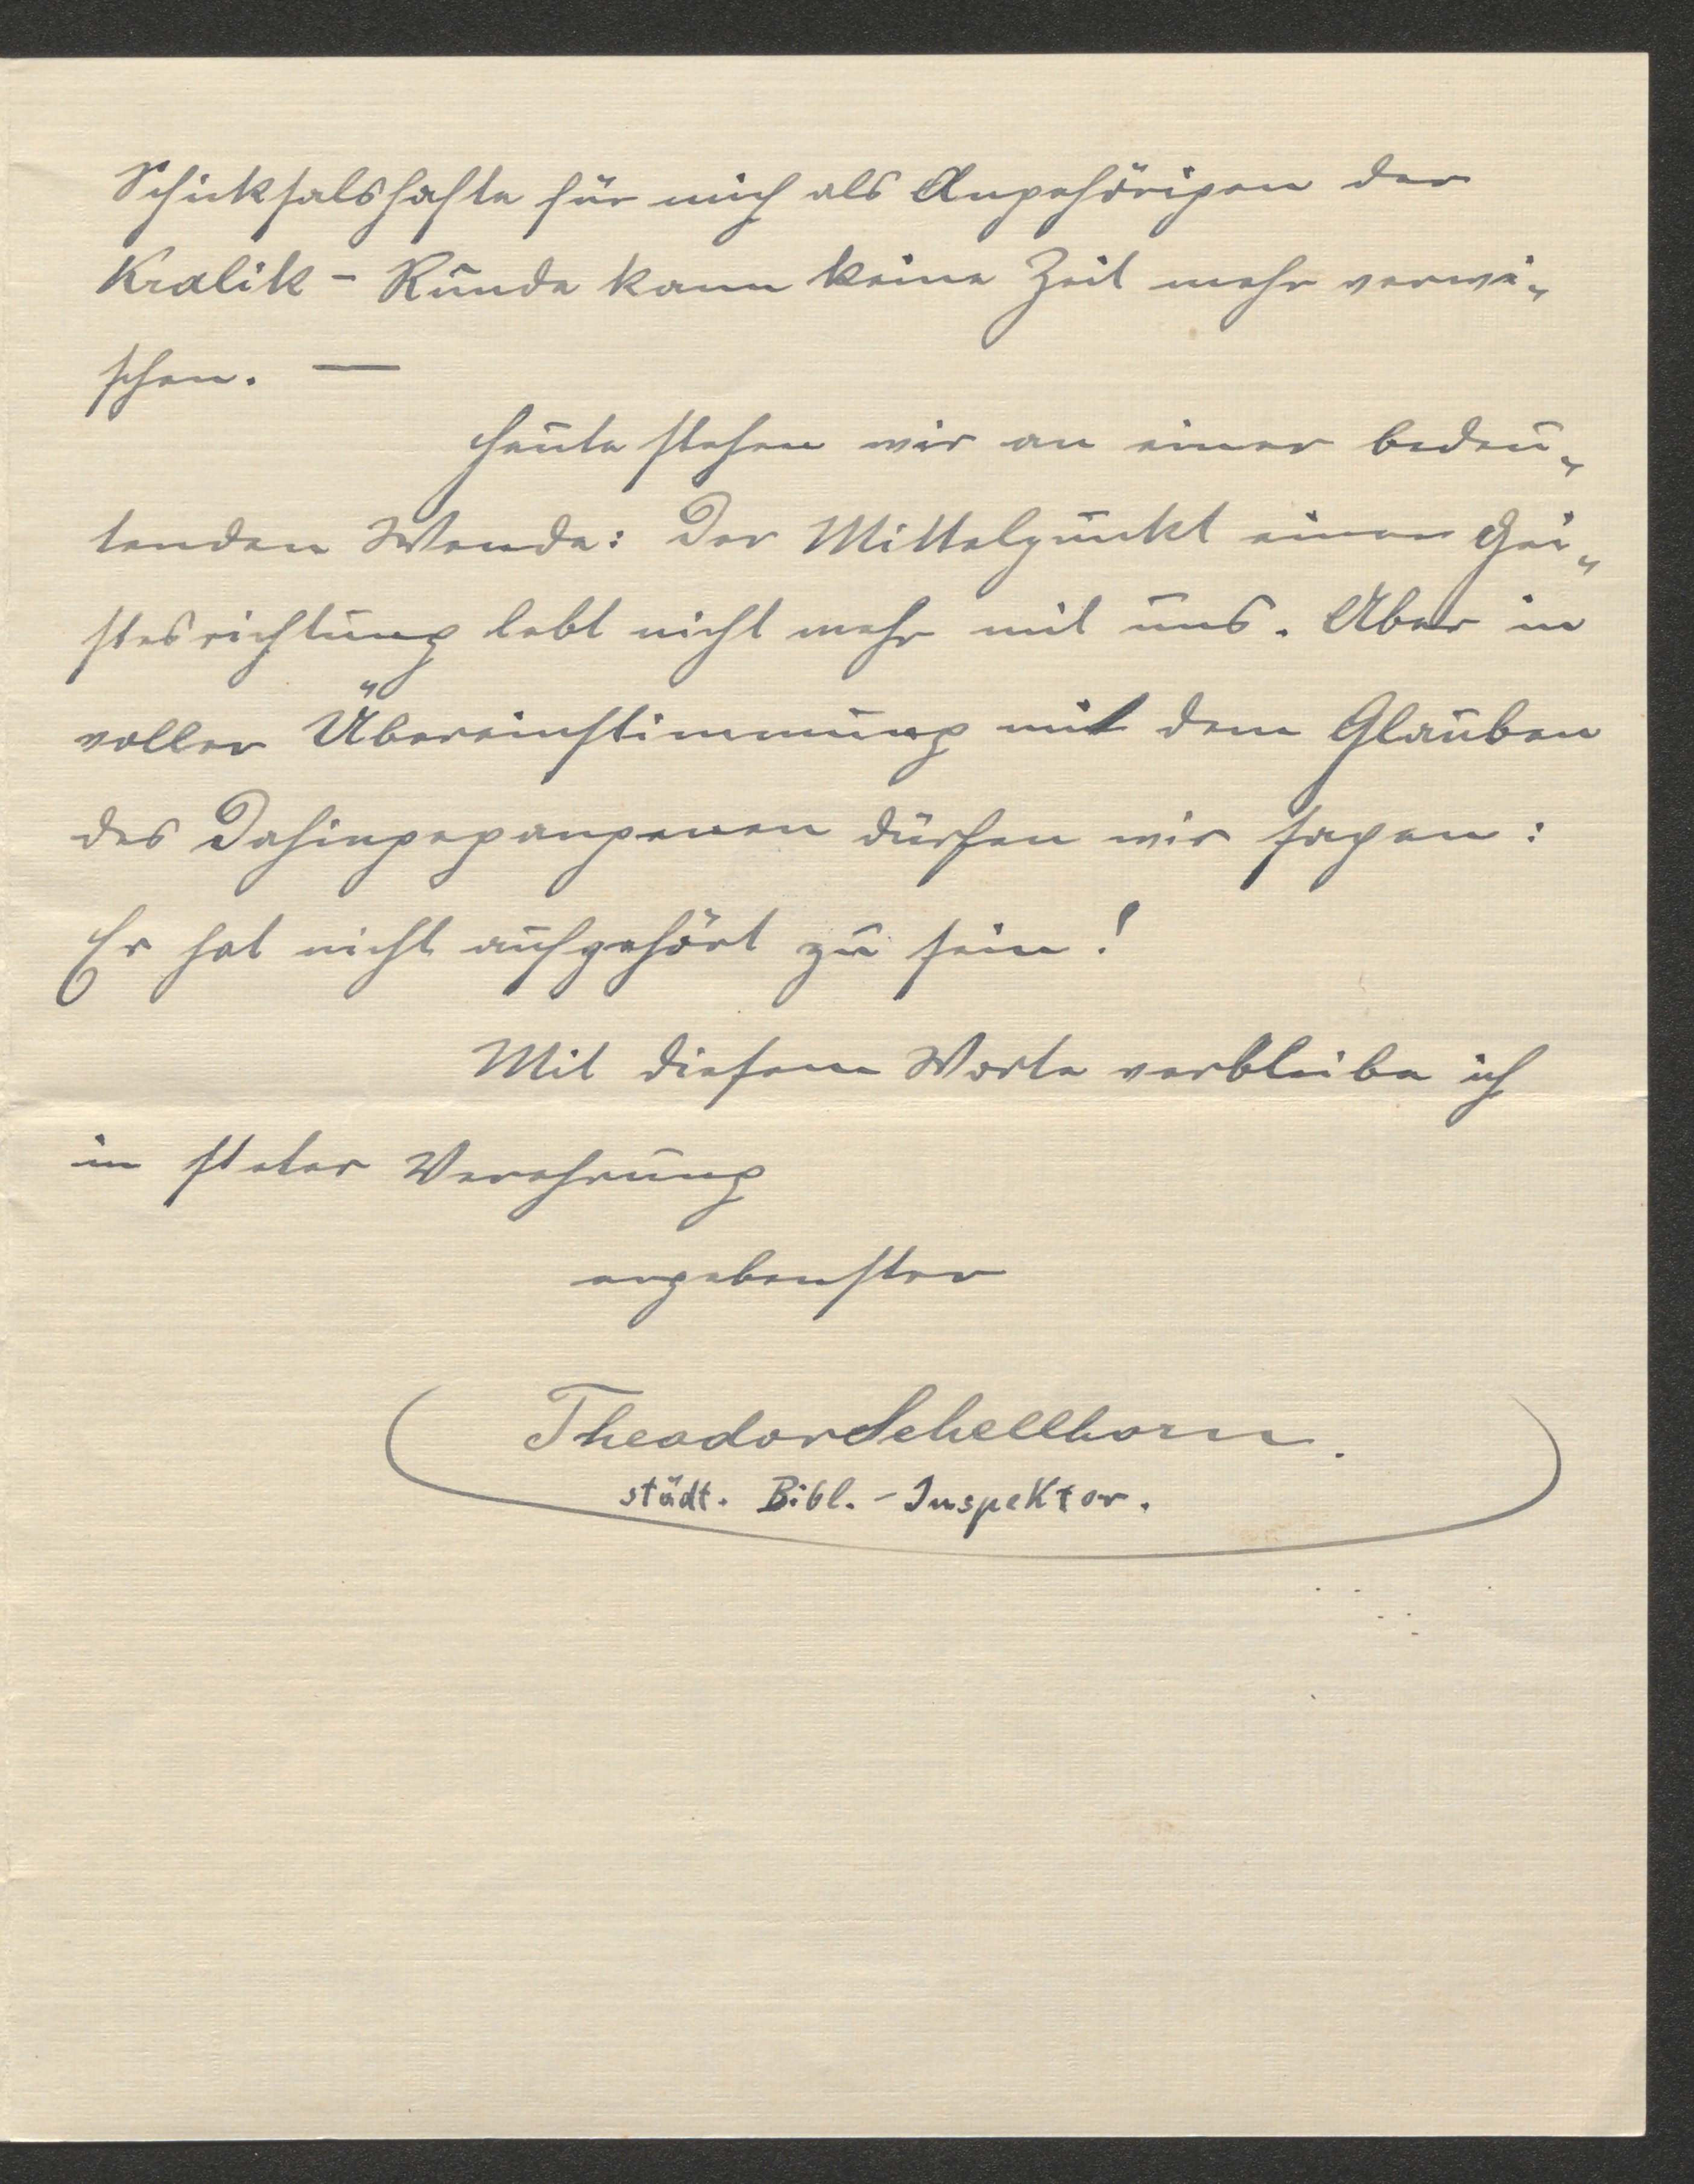 Schicksalshafte für mich als Angehörigen der
Kralik - Runde kann keine Zeit mehr verwi„
schen. —
Heute stehen wir an einer bedeu„
tenden Wende: Der Mittelpunkt einer Gei„
stesrichtung lebt nicht mehr mit uns. Aber in
voller Übereinstimmung mit dem Glauben
des Dahingegangenen dürfen wir sagen:
Er hat nicht aufgehört zu sein!
Mit diesem Worte verbleibe ich
in steter Verehrung
ergebenster
Theodor Schellhorn.
städt. Bibl. - Inspektor.